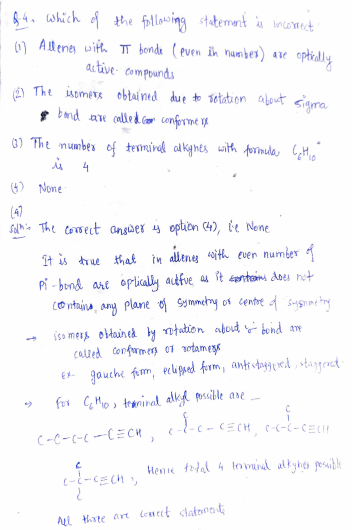 Q.4. Which of the following statement is incorrect.
(1) Allenes with π bonds (even in number) are optically
active compounds
(2) The isomers obtained due to rotation about sigma
bond are called conformers
(3) The number of terminal alkynes with formula C6H10
is 4
(4) None
(4)
Soln:- The correct answer is option (4), i.e None
It is true that in allenes with even number of
Pi-bond are optically active as it does not
contains any plane of symmetry or centre of symmetry
→ isomers obtained by rotation about 'σ' bond are
called conformers or rotamers
Ex- gauche form, eclipsed form, antistaggered, staggered
→ For C6H10, terminal alkyl possible are _
C C
C-C-C-C-C≡CH, C-C-C-C≡CH, C-C-C-C≡CH
C
C-C-C≡CH, Hence total 4 terminal alkynes possible
C
All three are correct statements